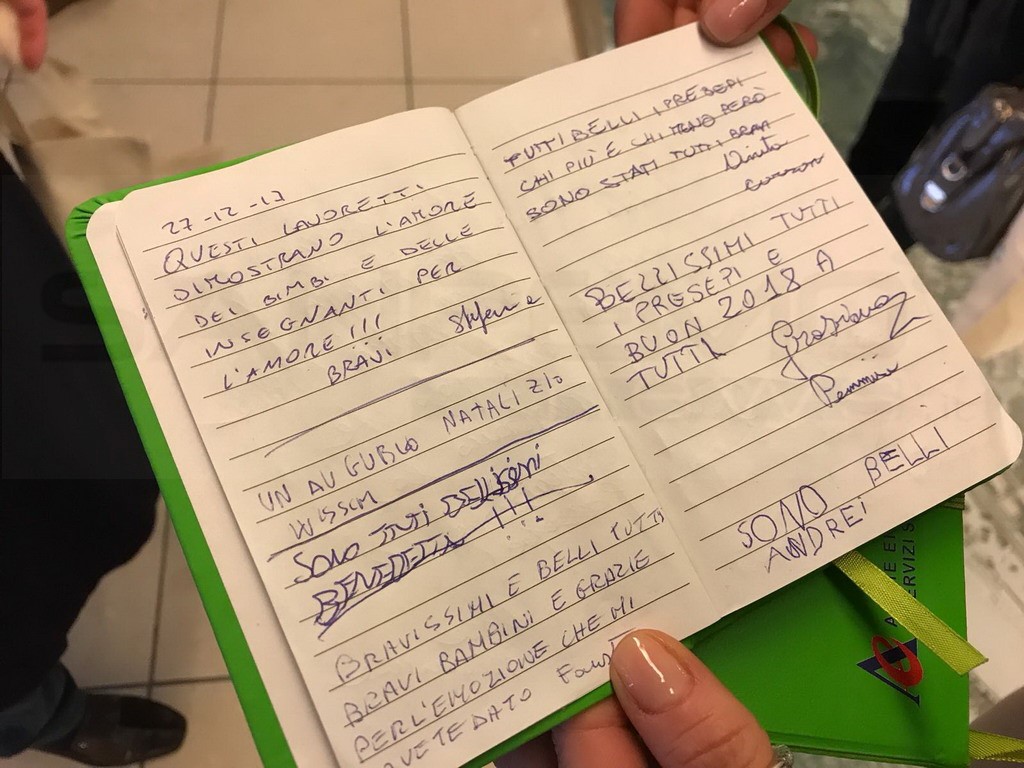 27-12-17
QUESTI LAVORETTI
DIMOSTRANO L'AMORE
DEI BIMBI E DELLE
INSEGNANTI PER
L'AMORE!!!
BRAVI
UN AUGURIO NATALIZIO
WISSEM
SONO TUTI BELLISSIMI
BENEDETTA !!!
BRAVISSIMI E BELLI TUTTI
BRAVI BAMBINI E GRAZIE
PER L'EMOZIONE CHE MI
AVETE DATO
TUTTI BELLI I PRESEPI
CHI PIÙ E CHI MENO PERÒ
SONO STATI TUTTI BRAVI
BELLISSIMI TUTTI
I PRESEPI E
BUON 2018 A
TUTTI Graziano
SONO BELLI
ANDREI